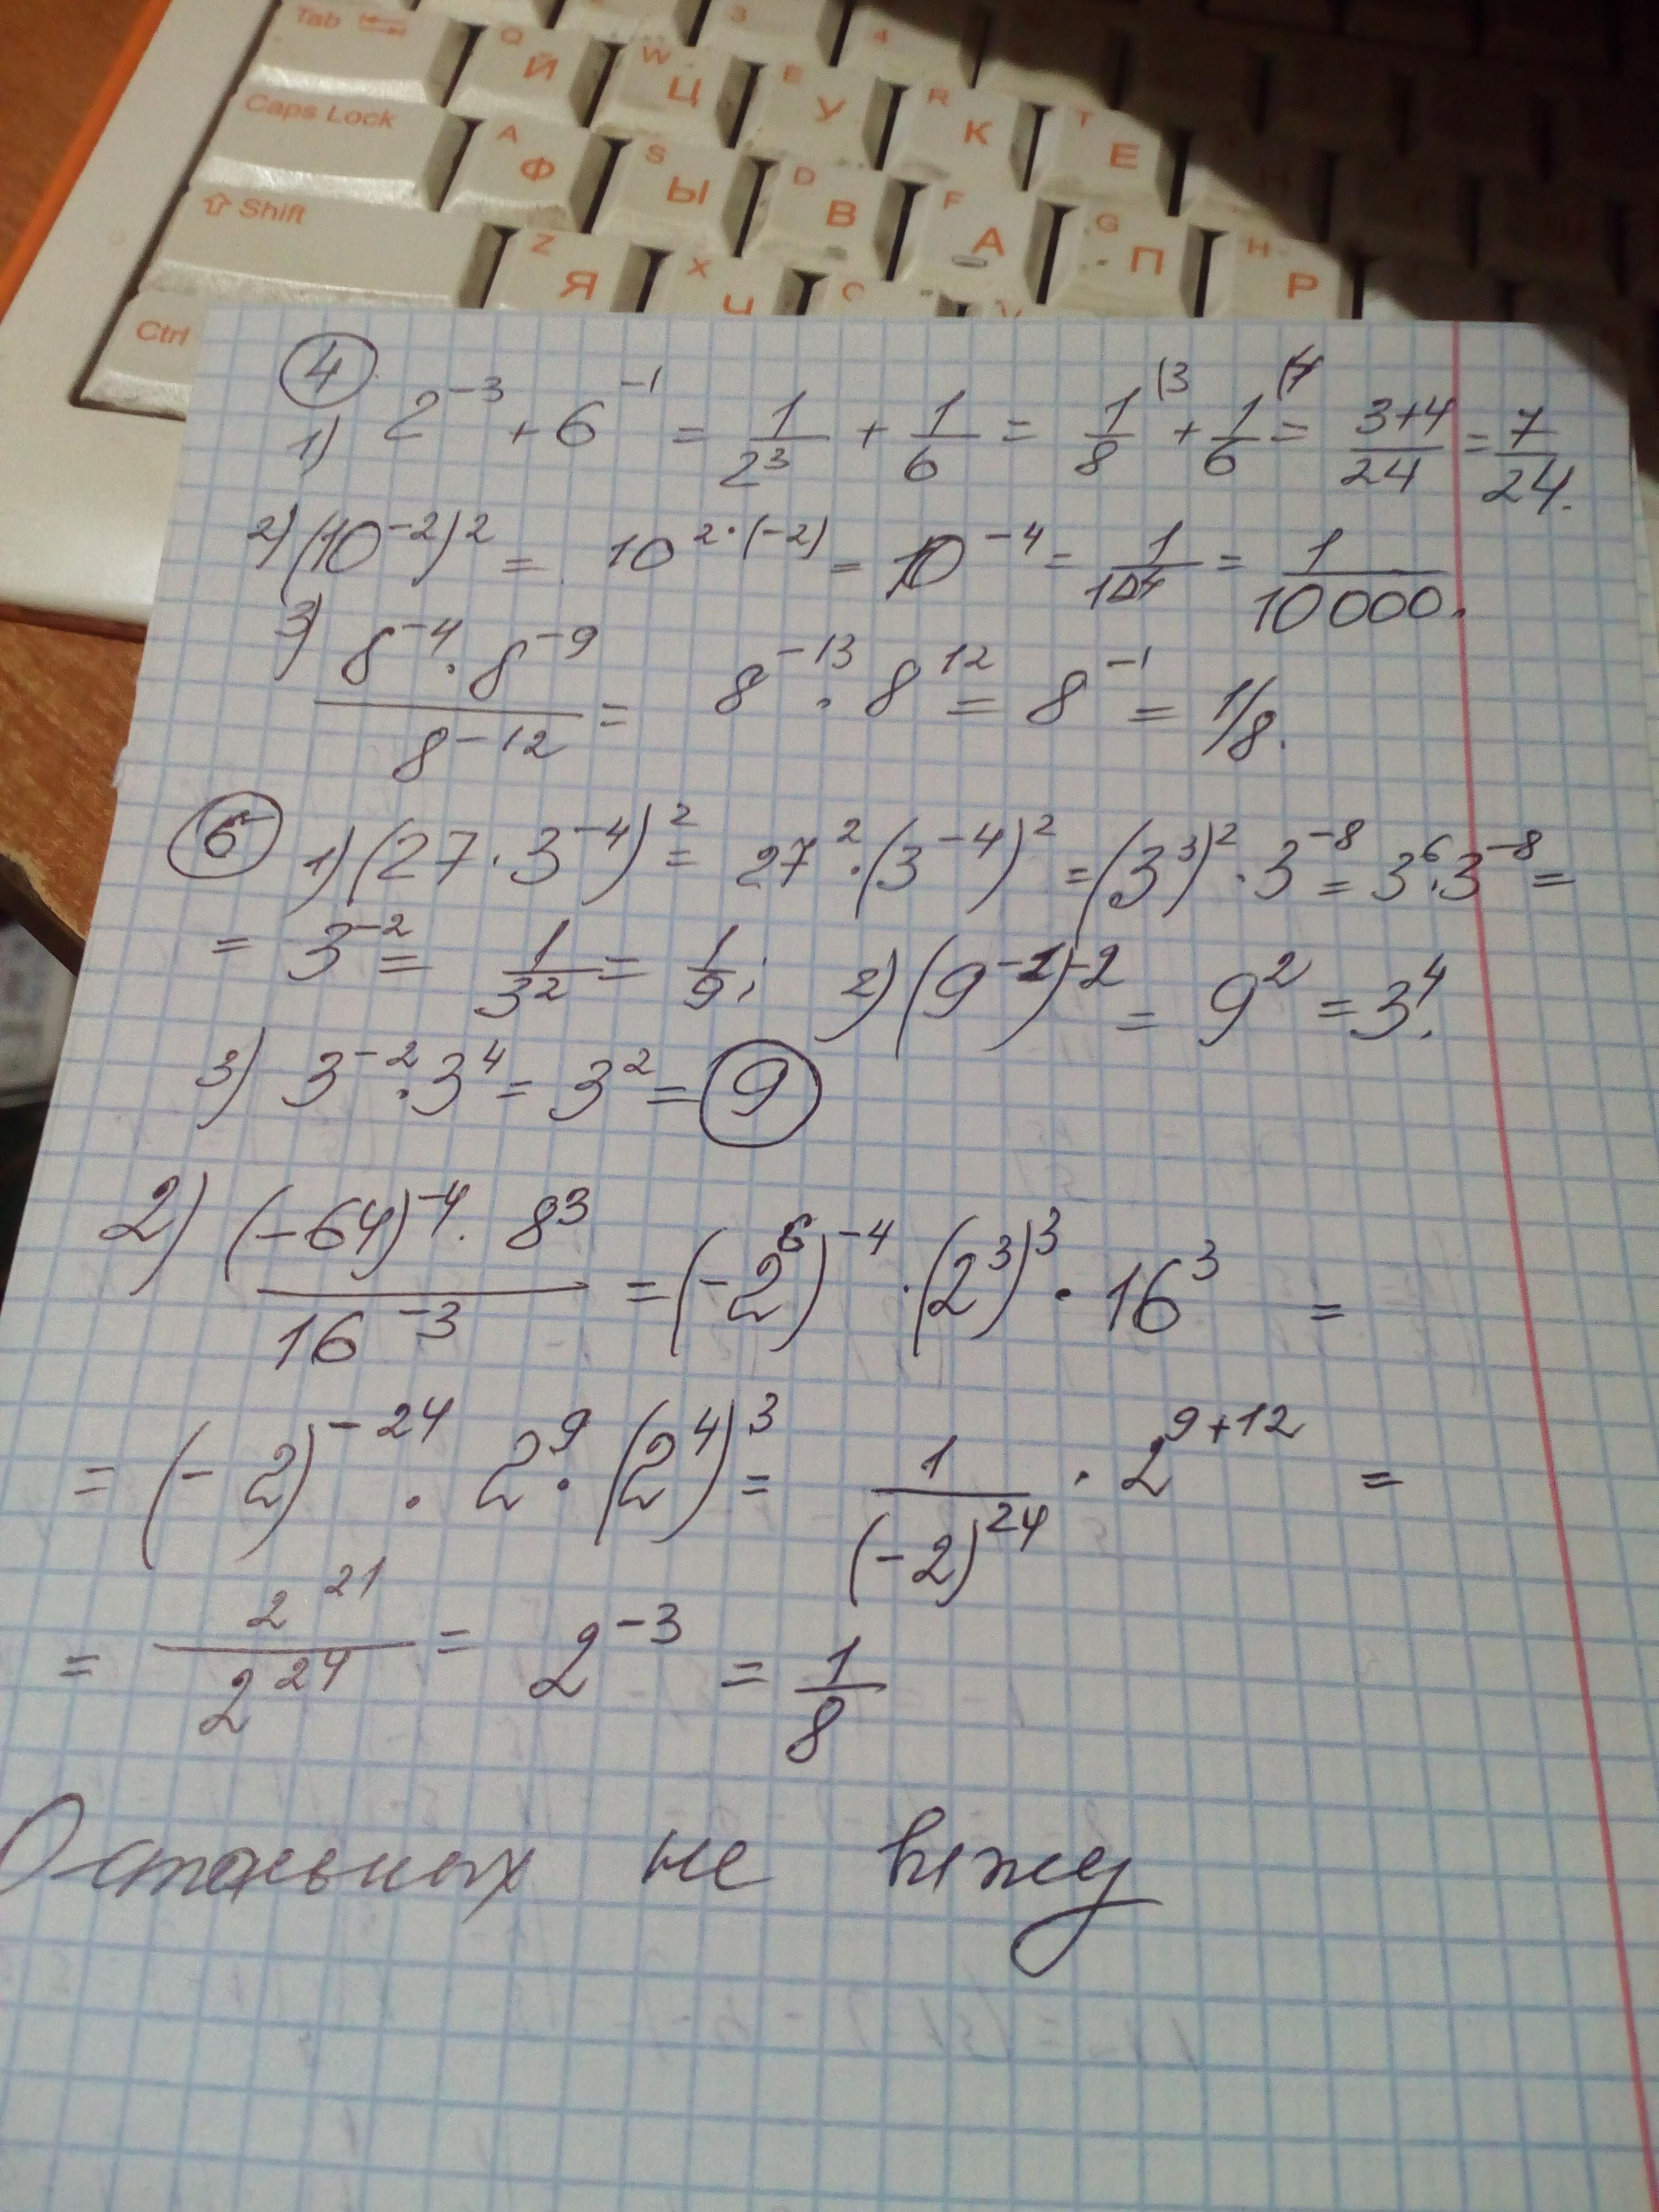 Tab 3 4
Q Й W Ц E У R К T Е
Caps Lock A Ф S Ы D В F А G П H Р
Shift Z Я X Ч C V
Ctrl
4
1) 2⁻³ + 6⁻¹ = 1/2³ + 1/6 = 1/8 (3 + 1/6 (4 = (3+4)/24 = 7/24.
2) (10⁻²)² = 10^(2·(-2)) = 10⁻⁴ = 1/10⁴ = 1/10000.
3) (8⁻⁴ · 8⁻⁹)/8⁻¹² = 8⁻¹³ · 8¹² = 8⁻¹ = 1/8.
6 1) (27 · 3⁻⁴)² = 27² · (3⁻⁴)² = (3³)² · 3⁻⁸ = 3⁶ · 3⁻⁸ =
= 3⁻² = 1/3² = 1/9; 2) (9⁻¹)⁻² = 9² = 3⁴.
3) 3⁻² · 3⁴ = 3² = 9
2) ((-64)⁻⁴ · 8³)/16⁻³ = (-2⁶)⁻⁴ · (2³)³ · 16³ =
= (-2)⁻²⁴ · 2⁹ · (2⁴)³ = 1/(-2)²⁴ · 2⁹⁺¹² =
= 2²¹/2²⁴ = 2⁻³ = 1/8
Остальных не вижу